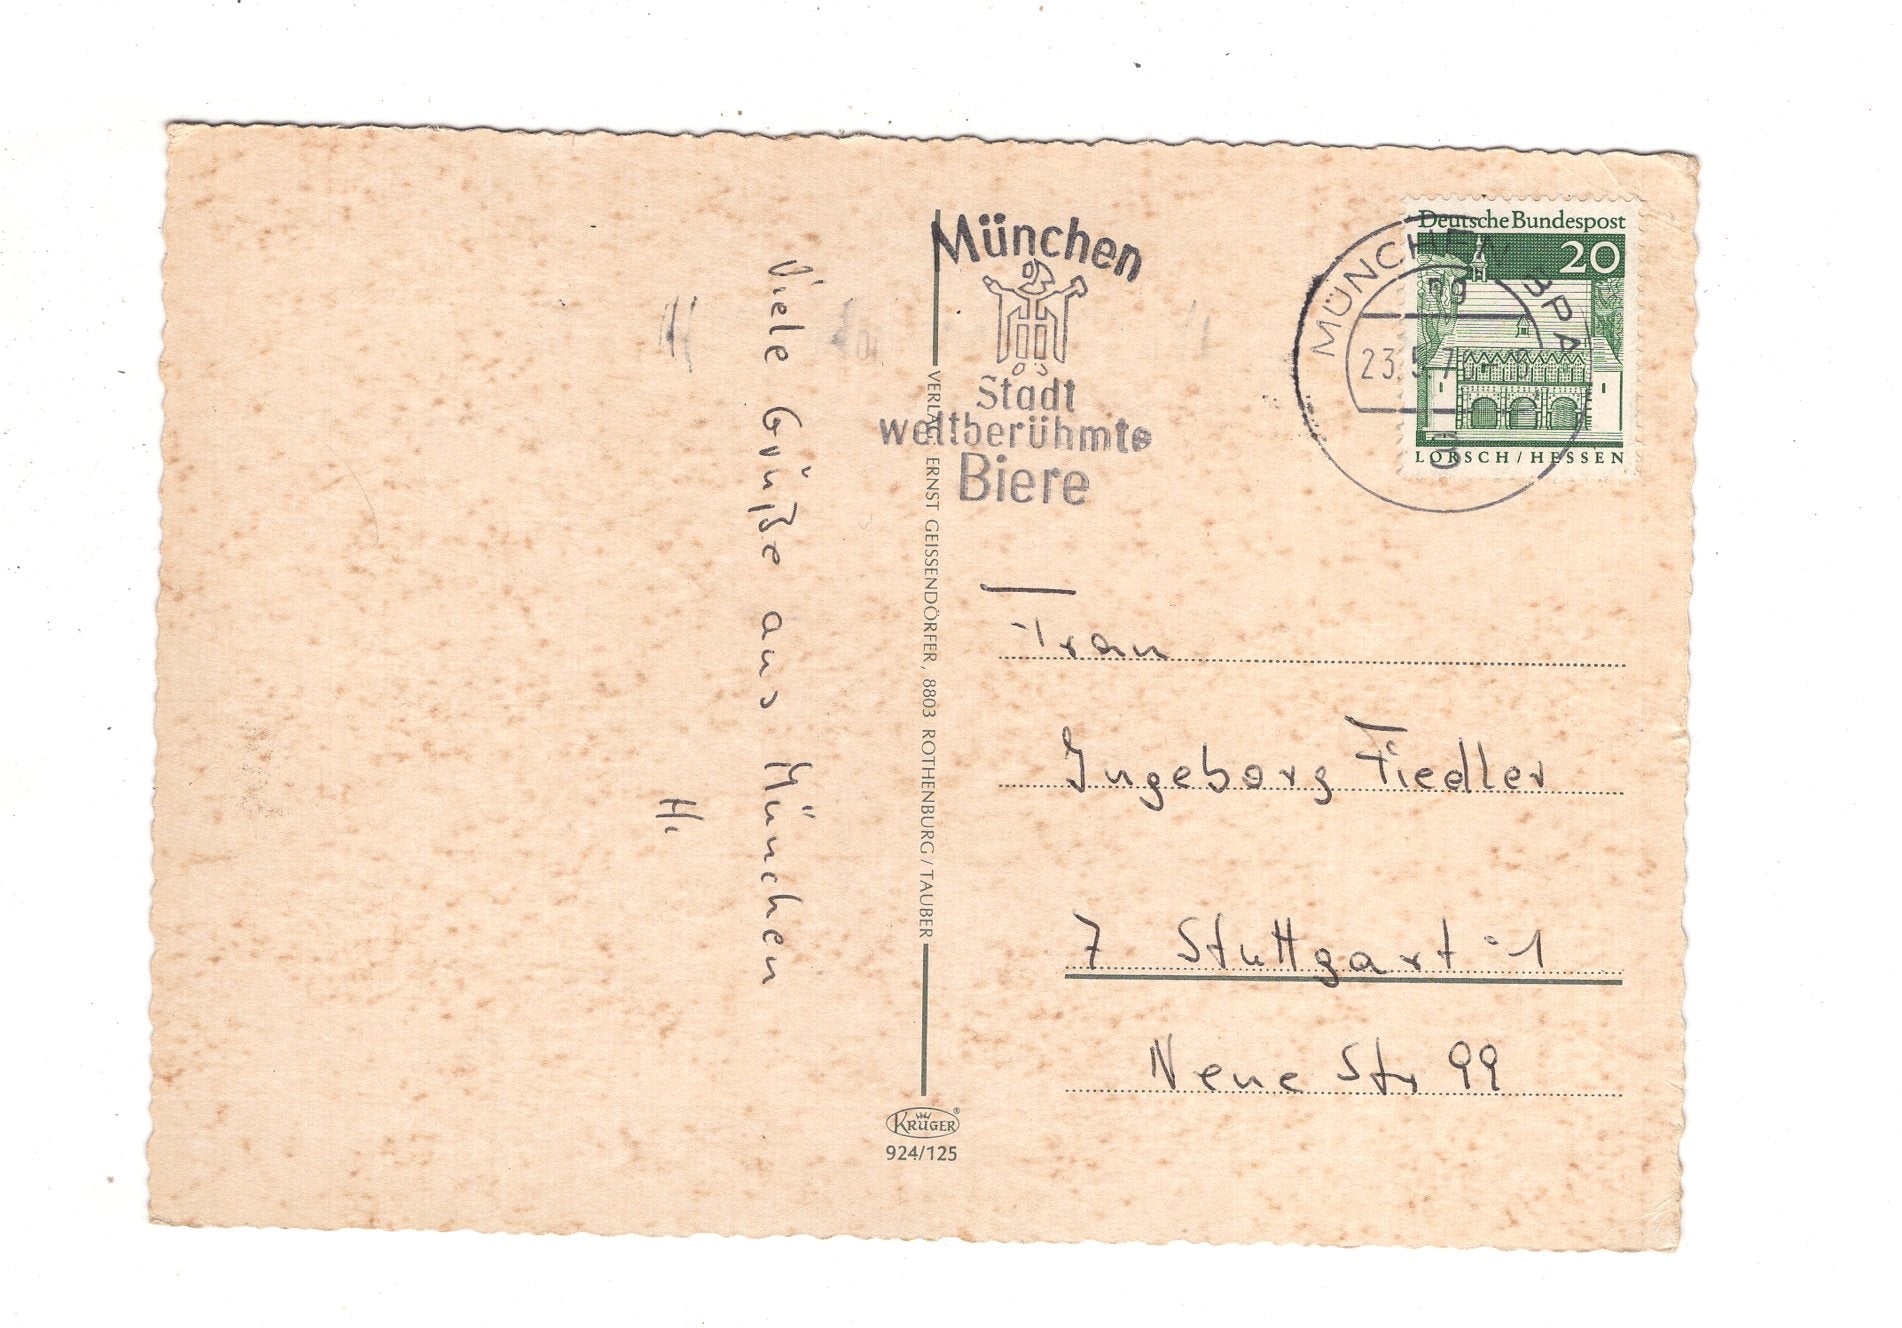 Viele Grüße aus München
H.
München
Stadt
weltberühmte
Biere
MÜNCHEN BPA
ng
23.5.7
Deutsche Bundespost
20
LORSCH / HESSEN
VERLAG ERNST GEISSENDÖRFER, 8803 ROTHENBURG / TAUBER
Frau
Ingeborg Fiedler
7 Stuttgart - 1
Neue Str 99
KRÜGER ®
924/125